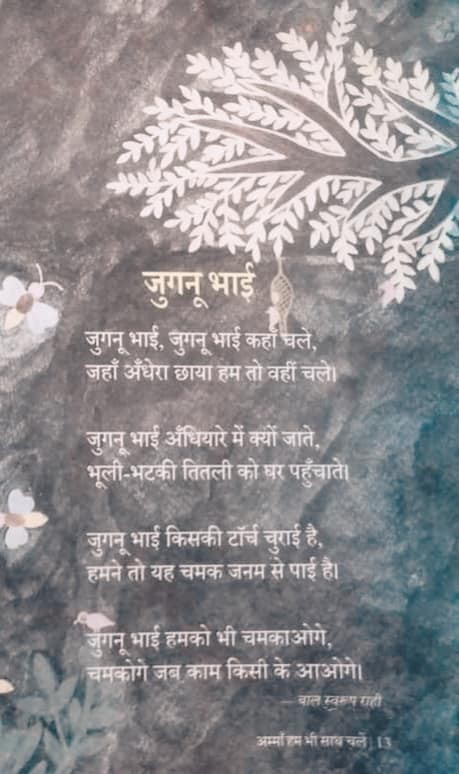 जुगनू भाई
जुगनू भाई, जुगनू भाई कहाँ चले,
जहाँ अँधेरा छाया हम तो वहीं चले।
जुगनू भाई अँधियारे में क्यों जाते,
भूली-भटकी तितली को घर पहुँचाते।
जुगनू भाई किसकी टॉर्च चुराई है,
हमने तो यह चमक जनम से पाई है।
जुगनू भाई हमको भी चमकाओगे,
चमकोगे जब काम किसी के आओगे।
— बाल स्वरूप राही
अम्माँ हम भी साथ चलें | 13